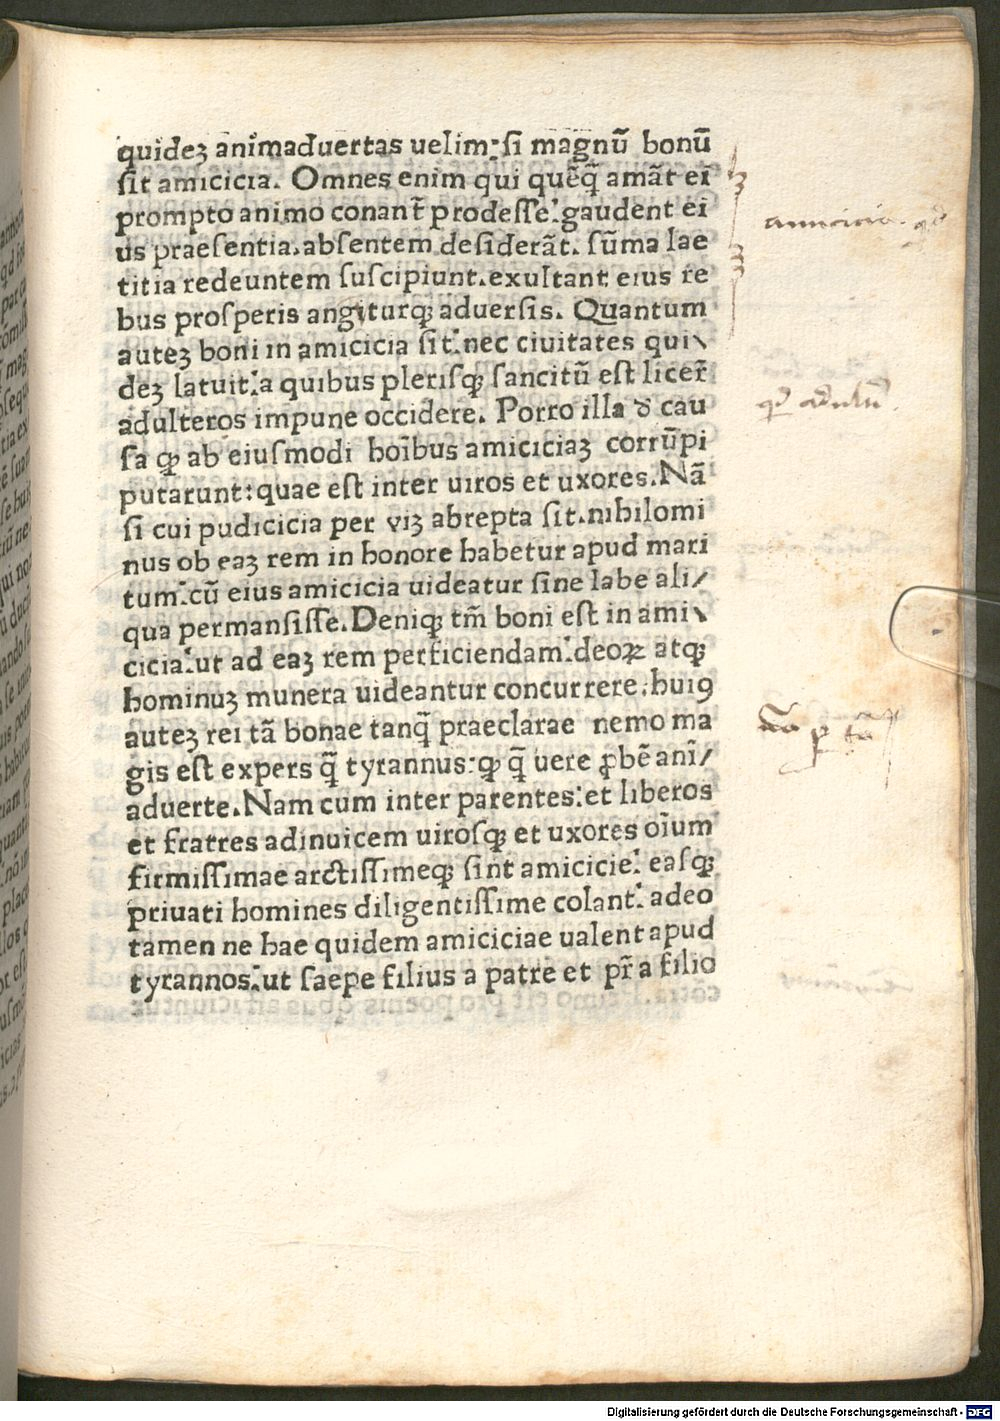 quideꝫ animaduertas uelim: si magnū bonū
sit amicicia. Omnes enim qui quēq̄ amāt ei
prompto animo conant̄ prodesse: gaudent ei
us praesentia. absentem desiderāt. sūma lae
titia redeuntem suscipiunt. exultant eius re
bus prosperis angiturqꝫ aduersis. Quantum
auteꝫ boni in amicicia sit: nec ciuitates qui\
deꝫ latuit: a quibus plerisqꝫ sancitū est licer̄
adulteros impune occidere. Porro illa d̄ cau
sa ꝙ ab eiusmodi hoībus amiciciaꝫ corrūpi
putarunt: quae est inter uiros et uxores. Nā
si cui pudicicia per viꝫ abrepta sit. nihilomi
nus ob eaꝫ rem in honore habetur apud mari
tum: cū eius amicicia uideatur sine labe ali/
qua permansisse. Deniqꝫ tm̄ boni est in ami\
cicia: ut ad eaꝫ rem perficiendam: deoꝝ atqꝫ
hominuꝫ munera uideantur concurrere: huiꝯ
auteꝫ rei tā bonae tanq̄ praeclarae nemo ma
gis est expers q̄ tyrannus: ꝙ q̄ uere ꝓbē anī/
aduerte. Nam cum inter parentes: et liberos
et fratres adinuicem uirosqꝫ et uxores oīum
firmissimae arctissimeqꝫ sint amicicie: easqꝫ
priuati homines diligentissime colant: adeo
tamen ne hae quidem amiciciae ualent apud
tyrannos: ut saepe filius a patre et pr̄ a filio
amicicia
Digitalisierung gefördert durch die Deutsche Forschungsgemeinschaft - DFG